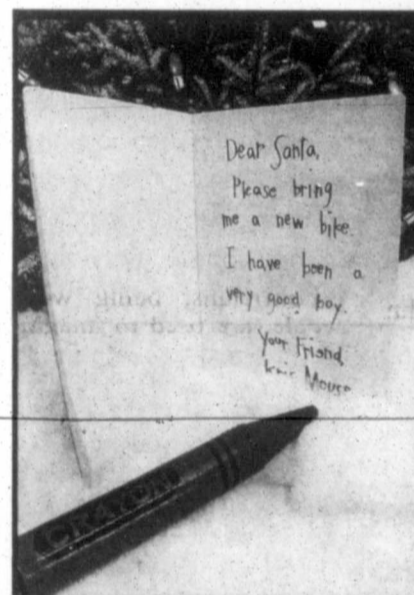 Dear Santa,
Please bring
me a new bike.
I have been a
very good boy.
Your Friend
Mouse
CRAYON